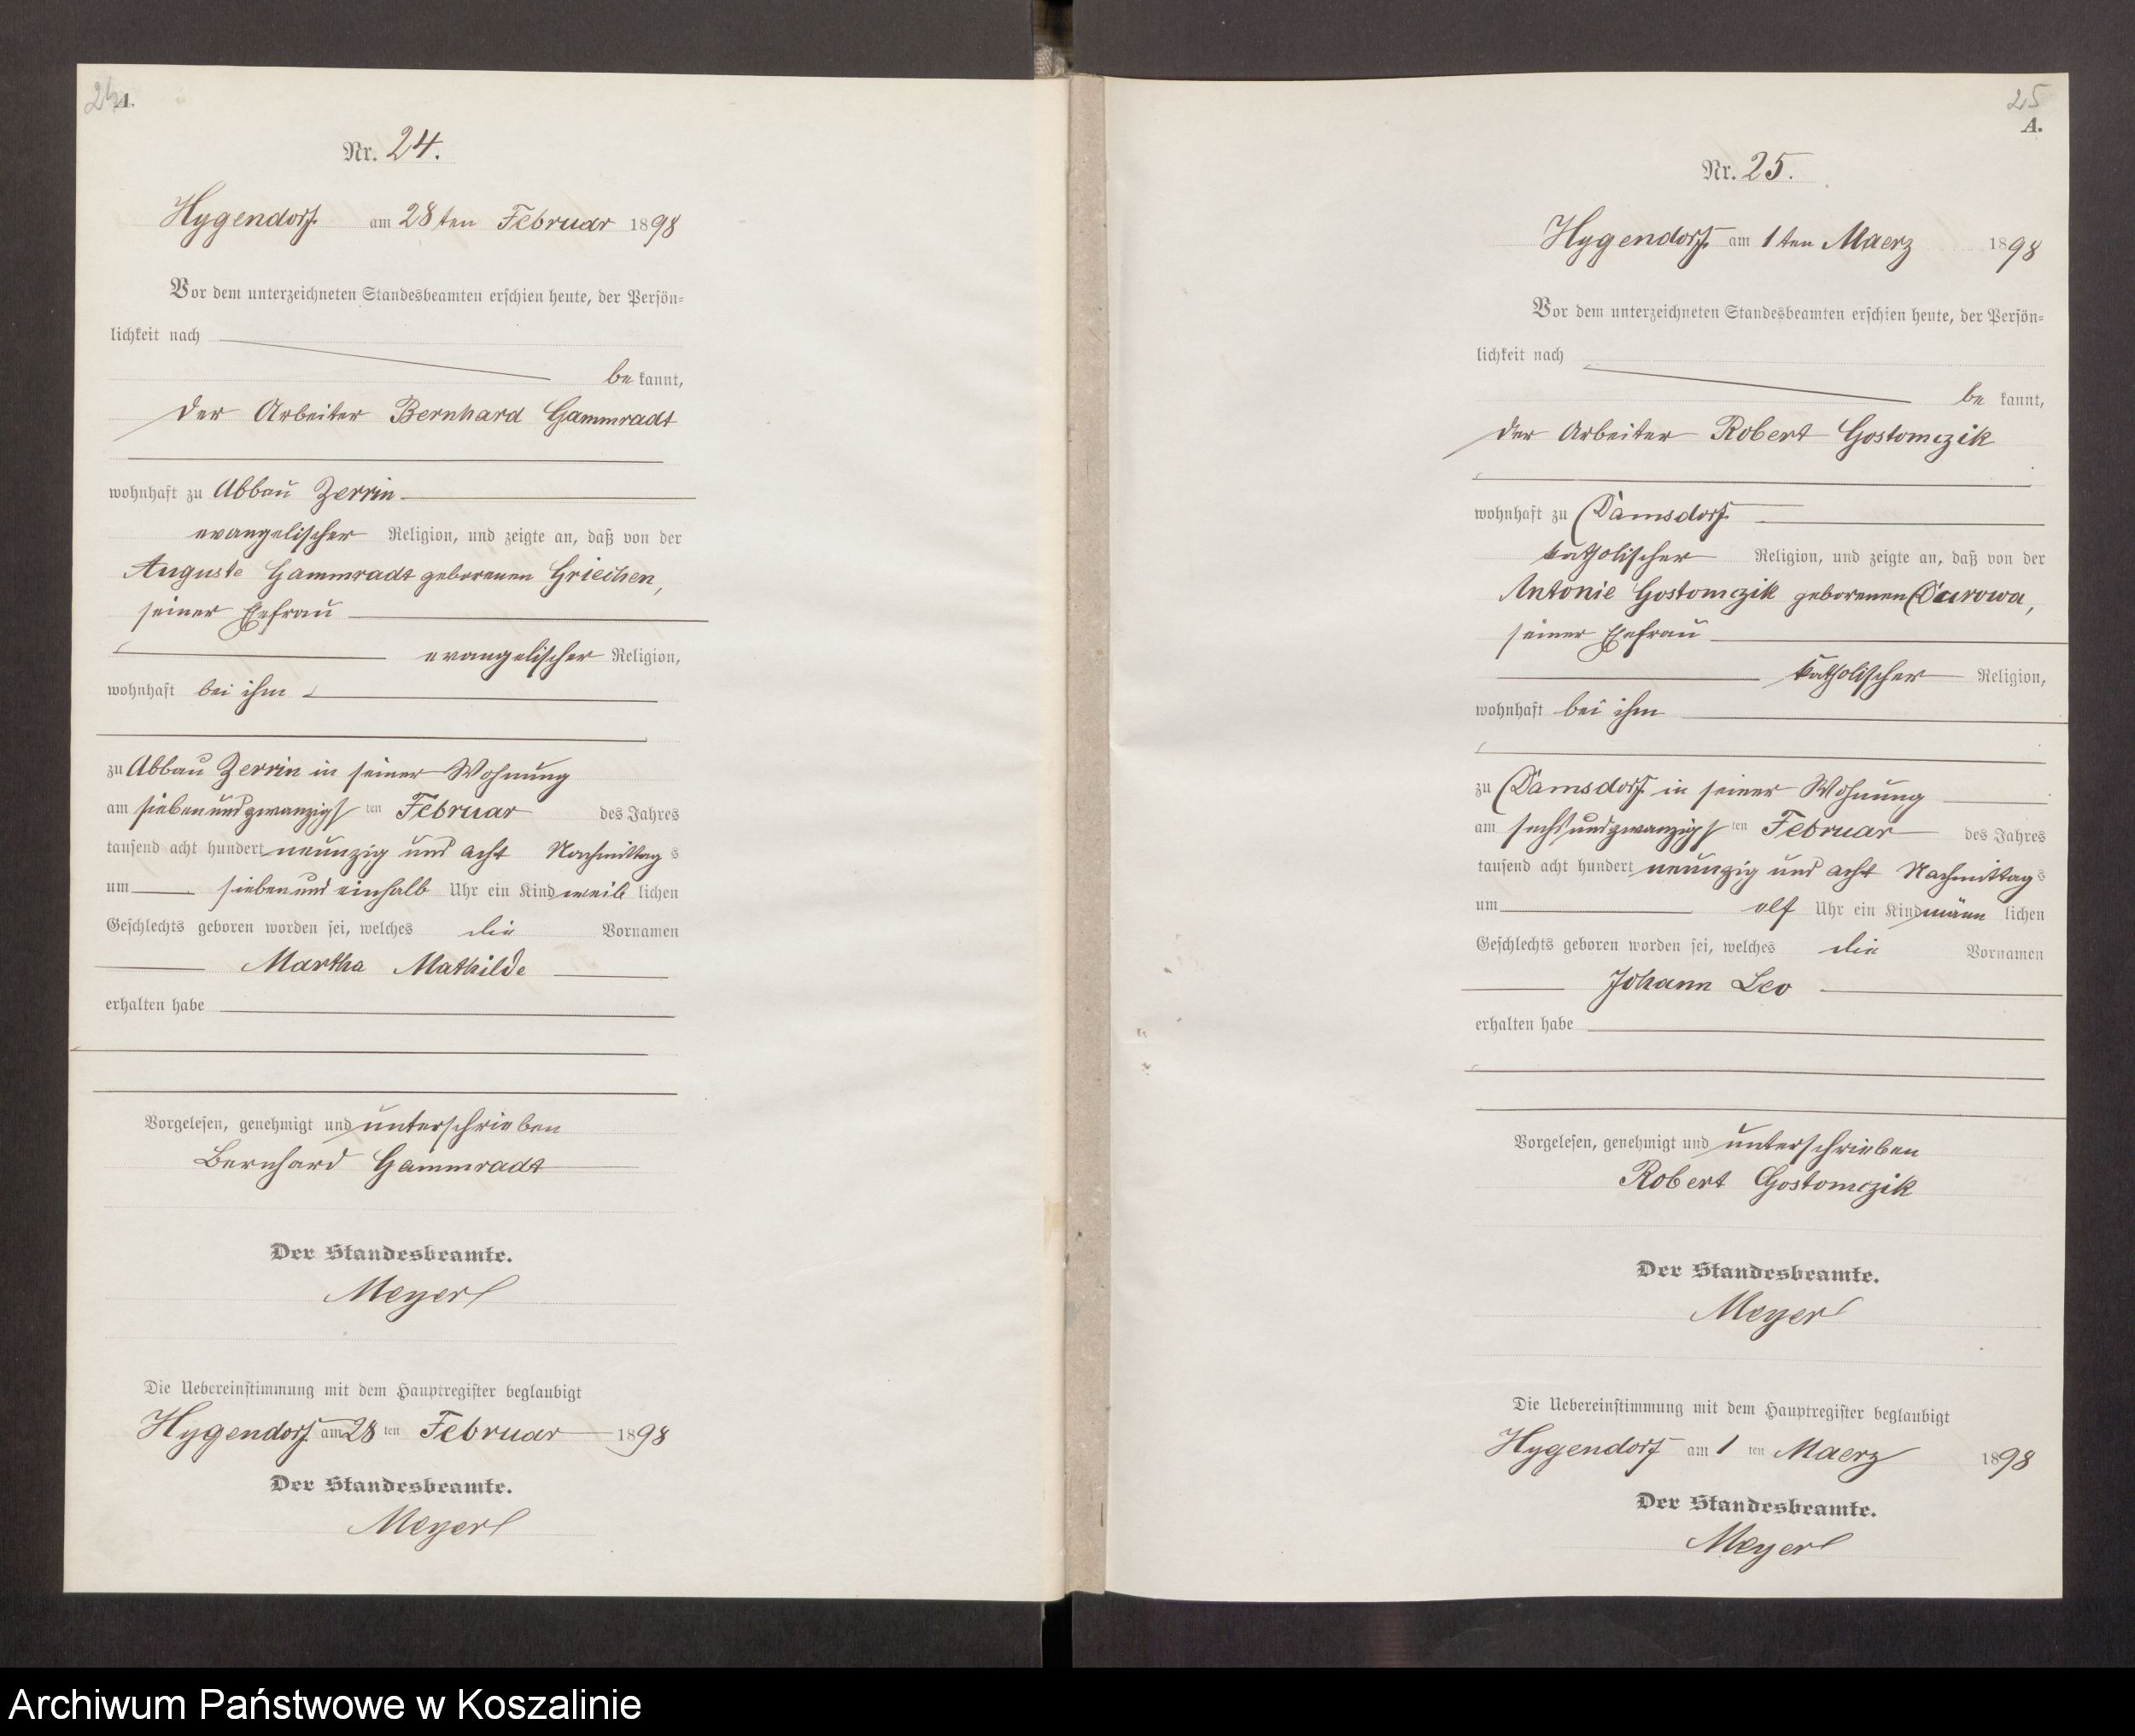 24
A.
Nr. 24.
Hygendorf am 28ten Februar 1898
Vor dem unterzeichneten Standesbeamten erschien heute, der Persön=
lichkeit nach
be kannt,
der Arbeiter Bernhard Gammradt
wohnhaft zu Abbau Zerrin
evangelischer Religion, und zeigte an, daß von der
Auguste Gammradt geborenen Griechen,
seiner Ehefrau
evangelischer Religion,
wohnhaft bei ihm
zu Abbau Zerrin in seiner Wohnung
am siebenundzwanzigsten Februar des Jahres
tausend acht hundert neunzig und acht Nachmittags
um sieben und einhalb Uhr ein Kind weiblichen
Geschlechts geboren worden sei, welches die Vornamen
Martha Mathilde
erhalten habe
Vorgelesen, genehmigt und unterschrieben
Bernhard Gammradt
Der Standesbeamte.
Meyer
Die Uebereinstimmung mit dem Hauptregister beglaubigt
Hygendorf am 28ten Februar 1898
Der Standesbeamte.
Meyer
25
A.
Nr. 25.
Hygendorf am 1ten Maerz 1898
Vor dem unterzeichneten Standesbeamten erschien heute, der Persön=
lichkeit nach
be kannt,
der Arbeiter Robert Gostomczik
wohnhaft zu Damsdorf
katholischer Religion, und zeigte an, daß von der
Antonie Gostomczik geborenen Durowa,
seiner Ehefrau
katholischer Religion,
wohnhaft bei ihm
zu Damsdorf in seiner Wohnung
am sechsundzwanzigsten Februar des Jahres
tausend acht hundert neunzig und acht Nachmittags
um elf Uhr ein Kind männlichen
Geschlechts geboren worden sei, welches die Vornamen
Johann Leo
erhalten habe
Vorgelesen, genehmigt und unterschrieben
Robert Gostomczik
Der Standesbeamte.
Meyer
Die Uebereinstimmung mit dem Hauptregister beglaubigt
Hygendorf am 1ten Maerz 1898
Der Standesbeamte.
Meyer
Archiwum Państwowe w Koszalinie